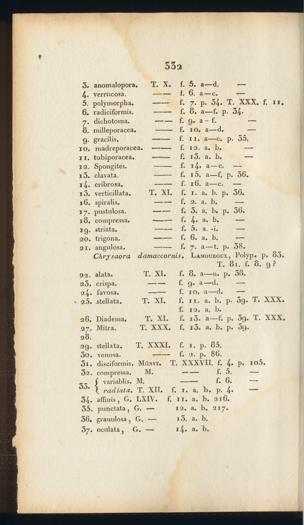 332
3. anomalopora. T. X. f. 5. a—d. —
4. verrucosa. — — f. 6. a—c. —
5. polymorpha. — — f. 7. p. 34. T. XXX. f. 11.
6. radiciformis. — — f. 8. a—f. p. 34.
7. dichotoma. — — f. 9. a - f. —
8. milleporacea. — — f. 10. a—d. —
9. gracilis. — — f. 11. a—c. p. 35.
10. madreporacea. — — f. 12. a. b. —
11. tubiporacea. — — f. 13. a. b. —
12. Spongites. — — f. 14. a—c. —
13. clavata. — — f. 15. a—f. p. 36.
14. cribrosa. — — f. 16. a—c. —
15. verticillata. T. XI. f. 1. a. b. p. 36.
16. spiralis. — — f. 2. a. b. —
17. pustulosa. — — f. 3. a. b. p. 36.
18. compressa. — — f. 4. a. b. —
19. striata. — — f. 5. a. -i. —
20. trigona. — — f. 6. a. b. —
21. angulosa. — — f. 7. a—t. p. 38.
Chrysaora damaecornis. LAMOUROUX, Polyp. p. 83.
T. 81. f. 8. 9?
22. alata. T. XI. f. 8. a—a. p. 38.
23. crispa. — — f. 9. a—d. —
24. favosa. — — f. 10. a—d. —
25. stellata. T. XI. f. 11. a. b. p. 39. T. XXX.
f. 12. a. b.
26. Diadema. T. XI. f. 13. a—f. p. 39. T. XXX.
27. Mitra. T. XXX. f. 13. a. b. p. 39.
28.
29. stellata. T. XXXI. f. 1. p. 85.
30. venosa. — — f. 2. p. 86.
31. disciformis. Münst. T. XXXVII. f. 4. p. 105.
32. compressa. M. — — f. 5. —
33. { variablis. M. — — f. 6. —
radiata. T. XII. f. 1. a. b. p. 4. —
34. affinis, G. LXIV. f. 11. a. b. 216.
35. punctata, G. — 12. a. b. 217.
36. granulosa, G. — 13. a. b.
37. oculata, G. — 14. a. b.